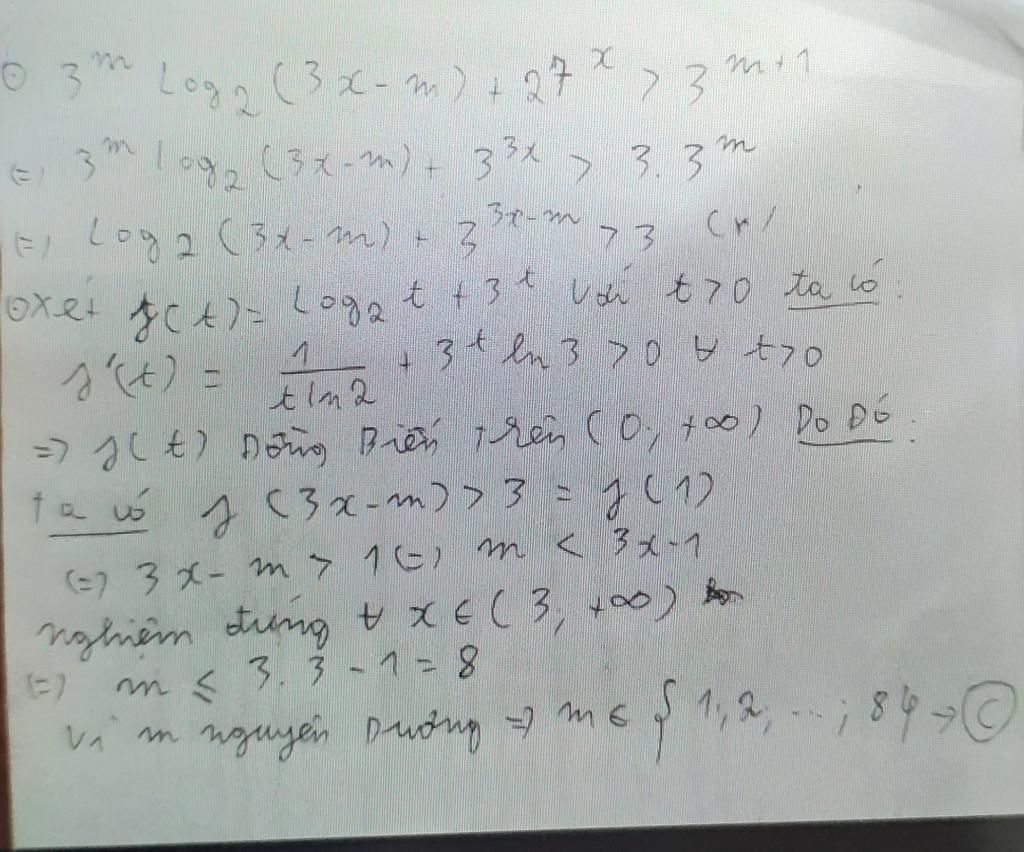 ⊙ 3^m Log₂(3x-m) + 27^x > 3^{m+1}
(=) 3^m log₂(3x-m) + 3^{3x} > 3.3^m
(=) Log₂(3x-m) + 3^{3x-m} > 3 (*)
⊙ xét f(t) = Log₂ t + 3^t Với t>0 ta có :
f'(t) = 1/(t ln2) + 3^t ln 3 > 0 ∀ t>0
=> f(t) Đồng Biến Trên (0; +∞) Do Đó :
ta có f(3x-m) > 3 = f(1)
(=) 3x-m > 1 (=) m < 3x-1
nghiệm đúng ∀ x ∈ (3, +∞)
(=) m ≤ 3.3-1 = 8
Vì m nguyên Dương => m ∈ {1,2,...; 8} → Ⓒ